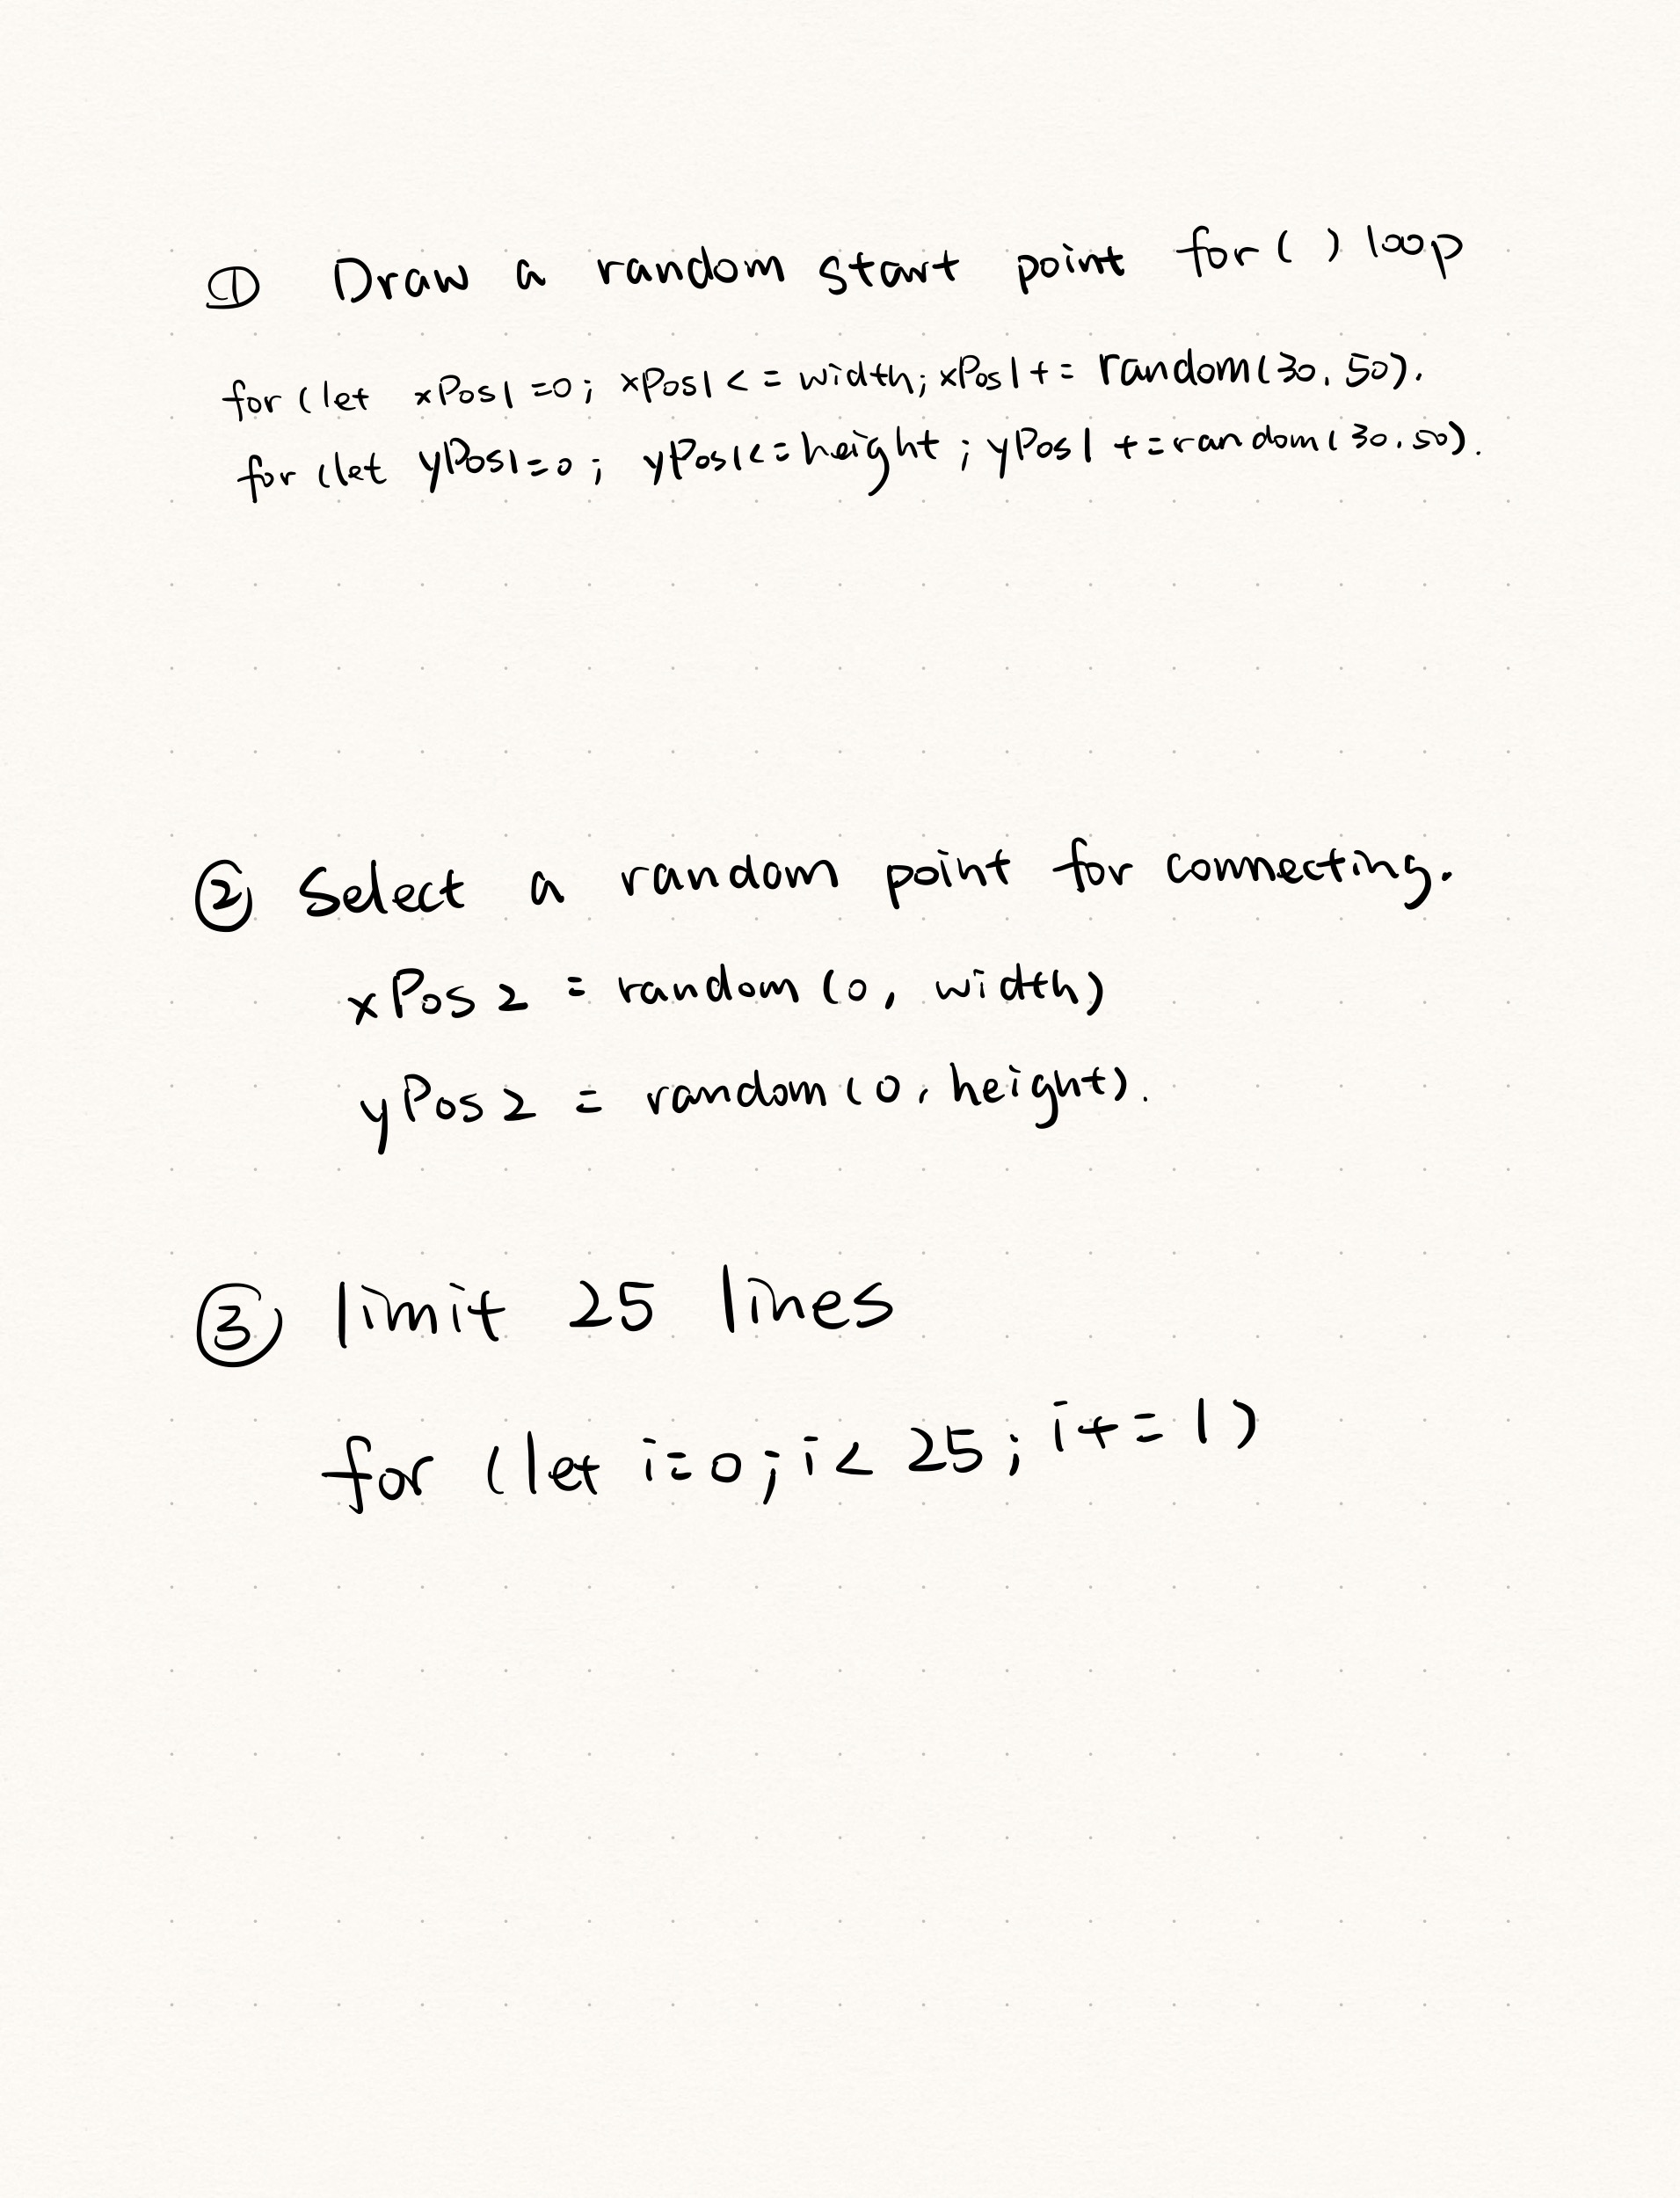 ① Draw a random start point for( ) loop
for (let xPos1=0; xPos1<=width; xPos1+= random(30, 50).
for (let yPos1=0; yPos1<=height; yPos1 +=random(30, 50).
② Select a random point for connecting.
xPos2 = random(0, width)
yPos2 = random(0, height).
③ limit 25 lines
for (let i=0; i< 25; i+=1)